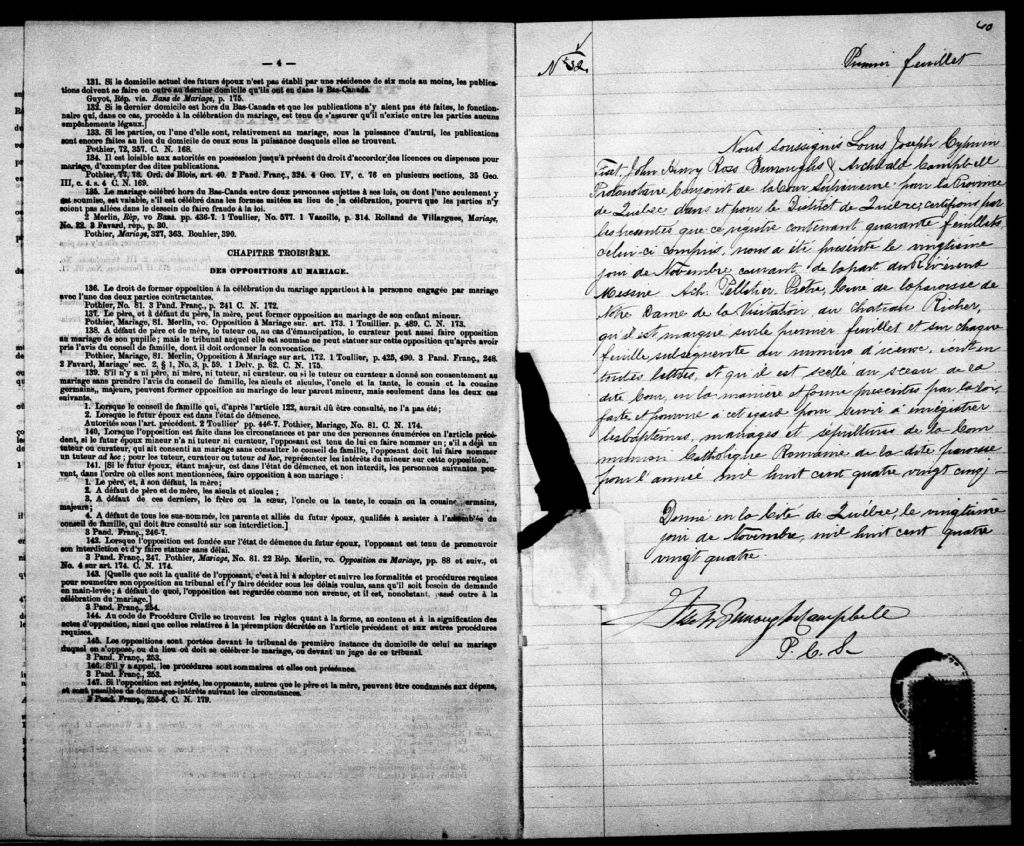 — 4 —
131. Si le domicile actuel des futurs époux n'est pas établi par une résidence de six mois au moins, les publications doivent se faire en outre au dernier domicile qu'ils ont eu dans le Bas-Canada.
Guyot, Rép. vis. Bans de Mariage, p. 175.
132. Si le dernier domicile est hors du Bas-Canada et que les publications n'y aient pas été faites, le fonctionnaire qui, dans ce cas, procède à la célébration du mariage, est tenu de s'assurer qu'il n'existe entre les parties aucuns empêchements légaux.]
133. Si les parties, ou l'une d'elle sont, relativement au mariage, sous la puissance d'autrui, les publications sont encore faites au lieu du domicile de ceux sous la puissance desquels elles se trouvent.
Pothier, 72, 357. C. N. 168.
134. Il est loisible aux autorités en possession jusqu'à présent du droit d'accorder des licences ou dispenses pour mariage, d'exempter des dites publications.
Pothier, 77, 78. Ord. de Blois, art. 40. 2 Pand. Franç., 324. 4 Geo. IV, c. 76 en plusieurs sections, 35 Geo. III, c. 4. s. 4 C. N. 169.
135. Le mariage célébré hors du Bas-Canda entre deux personnes sujettes à ses lois, ou dont l'une seulement y est soumise, est valable, s'il est célébré dans les formes usitées au lieu de la célébration, pourvu que les parties n'y soient pas allées dans le dessein de faire fraude à la loi.
2 Merlin, Rép, vo Bans. pp. 436-7. 1 Toullier, No. 577. 1 Vazeille, p. 314. Rolland de Villargues, Mariage, No. 22. 3 Favard, rép., p. 30.
Pothier, Mariage, 327, 363. Bouhier, 390.
CHAPITRE TROISIÈME.
DES OPPOSITIONS AU MARIAGE.
136. Le droit de former opposition à la célébration du mariage appartient à la personne engagée par mariage avec l'une des deux parties contractantes.
Pothier, No. 81. 3 Pand. Franç., p. 241 C. N. 172.
137. Le père, et à défaut du père, la mère, peut former opposition au mariage de son enfant mineur.
Pothier, Mariage, 81. Merlin, vo. Opposition à Mariage sur. art. 173. 1 Toullier. p. 489. C. N. 173.
138. A défaut de père et de mère, le tuteur ou, au cas d'émancipation, le curateur peut aussi faire opposition au mariage de son pupille; mais le tribunal auquel elle est soumise ne peut statuer sur cette opposition qu'après avoir pris l'avis du conseil de famille, dont il doit ordonner la convocation.
Pothier, Mariage, 81. Merlin, Opposition à Mariage sur art. 172. 1 Toullier, p. 425, 490. 3 Pand. Franç., 248. 2 Favard, Mariage' sec. 2, § 1, No. 3, p. 59. 1 Delv. p. 62. C. N. 175.
139. S'il n'y a ni père, ni mère, ni tuteur, ni curateur, ou si le tuteur ou curateur a donné son consentement au mariage sans prendre l'avis du conseil de famille, les aïeuls et aïeules, l'oncle et la tante, le cousin et la cousine germains,, majeurs, peuvent former opposition au mariage de leur parent mineur, mais seulement dans les deux cas suivants.
1. Lorsque le conseil de famille qui, d'après l'article 122, aurait dû être consulté, ne l'a pas été;
2. Lorsque le futur époux est dans l'état de démence.
Autorités sous l'art. précédent. 2 Toullier' pp. 446-7. Pothier, Mariage, No. 81. C. N. 174.
140. Lorsque l'opposition est faite dans les circonstances et par une des personnes énumérées en l'article précédent, si le futur époux mineur n'a ni tuteur ni curateur, l'opposant est tenu de lui en faire nommer un; s'il a déjà un tuteur ou curateur, qui ait consenti au mariage sans consulter le conseil de famille, l'opposant doit lui faire nommer un tuteur ad hoc; pour le tuteur, curateur ou tuteur ad hoc, représenter les intérêts du mineur sur cette opposition.
141. [Si le futur époux, étant majeur, est dans l'état de démence, et non interdit, les personnes suivantes peuvent, dans l'ordre où elles sont mentionnées, faire opposition à son mariage:
1. Le père, et, à son défaut, la mère;
2. A défaut de père et de mère, les aïeuls et aïeules;
3. A défaut de ces derniers, le frère ou la sœur, l'oncle ou la tante, le cousin ou la cousine germains, majeurs;
4. A défaut de tous les sus-nommés, les parents et alliés du futur époux, qualifiés à assister à l'assemblée du conseil de famille, qui doit être consulté sur son interdiction.]
3 Pand. Franç., 246-7.
142. Lorsque l'opposition est fondée sur l'état de démence du futur époux, l'opposant est tenu de promouvoir son interdiction et d'y faire statuer sans délai.
3 Pand. Franç., 247. Pothier, Mariage, No. 81. 22 Rép. Merlin, vo. Opposition au Mariage, pp. 88 et suiv., et No. 4 sur art. 174. C. N. 174.
143. [Quelque soit la qualité de l'opposant, c'est à lui à adopter et suivre les formalités et procédures requises pour soumettre son opposition au tribunal et l'y faire décider sous les délais voulus, sans qu'il soit besoin de demande en main-levée; à défaut de quoi, l'opposition est regardée comme non avenue, et il est, nonobstant, passé outre à la célébration du mariage.]
3 Pand. Franç., 254.
144. Au code de Procédure Civile se trouvent les règles quant à la forme, au contenu et à la signification des actes d'opposition, ainsi que celles relatives à la péremption décrétée en l'article précédent et aux autres procédures requises.
145. Les oppositions sont portées devant le tribunal de première instance du domicile de celui au mariage duquel on s'oppose, ou du lieu où doit se célébrer le mariage, ou devant un juge de ce tribunal.
3 Pand. Franç., 253.
146. S'il y a appel, les procédures sont sommaires et elles ont préséance.
3 Pand. Franç., 253.
147. Si l'opposition est rejetée, les opposants, autres que le père et la mère, peuvent être condamnés aux dépens, et sont passibles de dommages-intérêts suivant les circonstances.
3 Pand. Franç., 255-6. C. N. 179.
No 32.
Premier feuillet
Nous soussignés Louis Joseph Cyprien
Fiset, John Henry Ross Burroughs & Archibald Campbell
Protonotaire Conjoint de la Cour Supérieure pour la Province
de Québec dans et pour le District de Québec, certifions par
les présentes que ce registre contenant quarante feuillets,
celui-ci compris, nous a été présenté le vingtième
jour de Novembre courant de la part du Révérend
Messire Ach. Pelletier Ptre, Curé de la paroisse de
Notre Dame de la Visitation du Chateau Richer,
qu'il est marqué sur le premier feuillet et sur chaque
feuille subséquente du numéro d'icence, écrit en
toutes lettres, et qu'il est scellé du sceau de la
dite Cour, en la manière et forme prescrites par la loi
faite et pourvue à cet égard pour servir à enrégistrer
les baptêmes, mariages et sépultures de la Com
munion Catholique Romaine de la dite paroisse
pour l'année mil huit cent quatre vingt cinq —
Donné en la Cité de Québec, le vingtième
jour de Novembre, mil huit cent quatre
vingt quatre.
Fiset Burroughs Campbell
P. C. S—